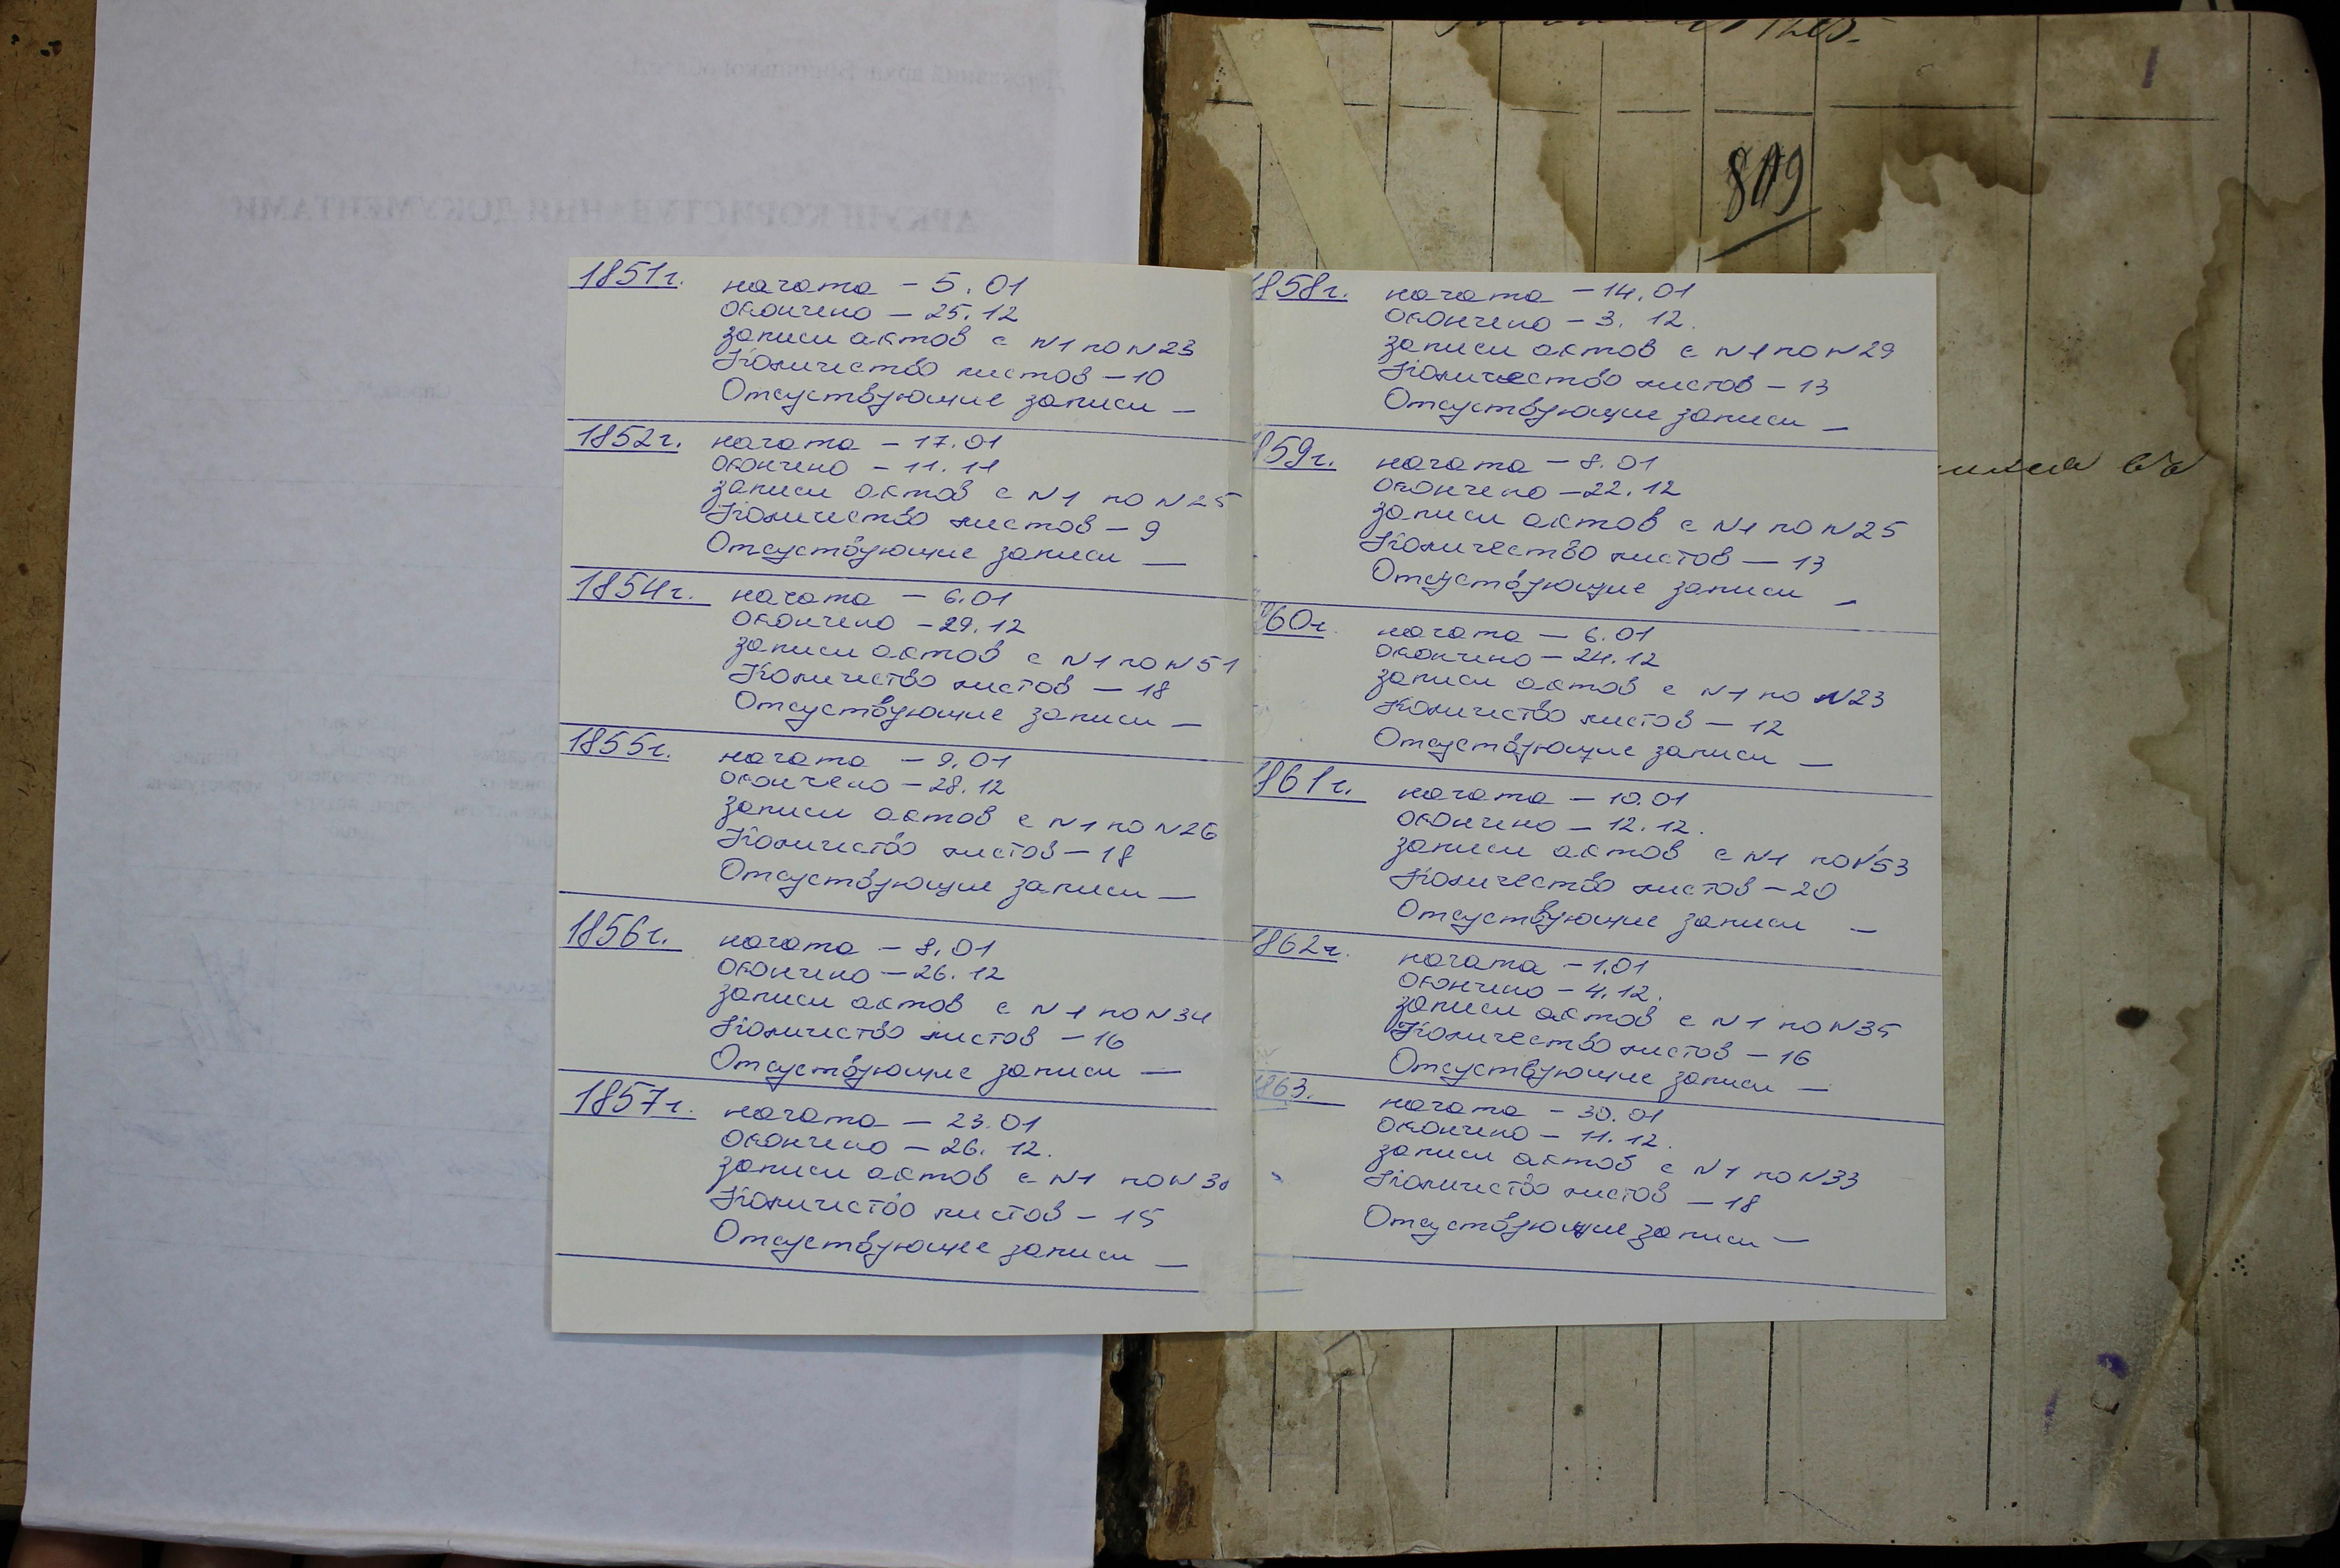 809
1851г. начата – 5.01
окончено – 25.12
записи актов с N1 по N23
Количество листов – 10
Отсуствующие записи –
1852г. начата – 17.01
окончено – 11.11
записи актов с N1 по N25
Количество листов – 9
Отсуствующие записи –
1854г. начата – 6.01
окончено – 29.12
записи актов с N1 по N51
Количество листов – 18
Отсуствующие записи –
1855г. начата – 9.01
окончено – 28.12
записи актов с N1 по N26
Количество листов – 18
Отсуствующие записи –
1856г. начата – 8.01
окончено – 26.12
записи актов с N1 по N34
Количество листов – 16
Отсуствующие записи –
1857г. начата – 23.01
окончено – 26.12.
записи актов с N1 по N30
Количество листов – 15
Отсуствующие записи –
1858г. начата – 14.01
окончено – 3.12.
записи актов с N1 по N29
Количество листов – 13
Отсуствующие записи –
1859г. начата – 8.01
окончено – 22.12
записи актов с N1 по N25
Количество листов – 13
Отсуствующие записи –
1860г. начата – 6.01
окончено – 24.12
записи актов с N1 по N23
Количество листов – 12
Отсуствующие записи –
1861г. начата – 10.01
окончено – 12.12.
записи актов с N1 по N53
Количество листов – 20
Отсуствующие записи –
1862г. начата – 1.01
окончено – 4.12.
записи актов с N1 по N35
Количество листов – 16
Отсуствующие записи –
1863. начата – 30.01
окончено – 11.12.
записи актов с N1 по N33
Количество листов – 18
Отсуствующие записи –
АРКУШ КОРИСТУВАННЯ ДОКУМЕНТАМИ